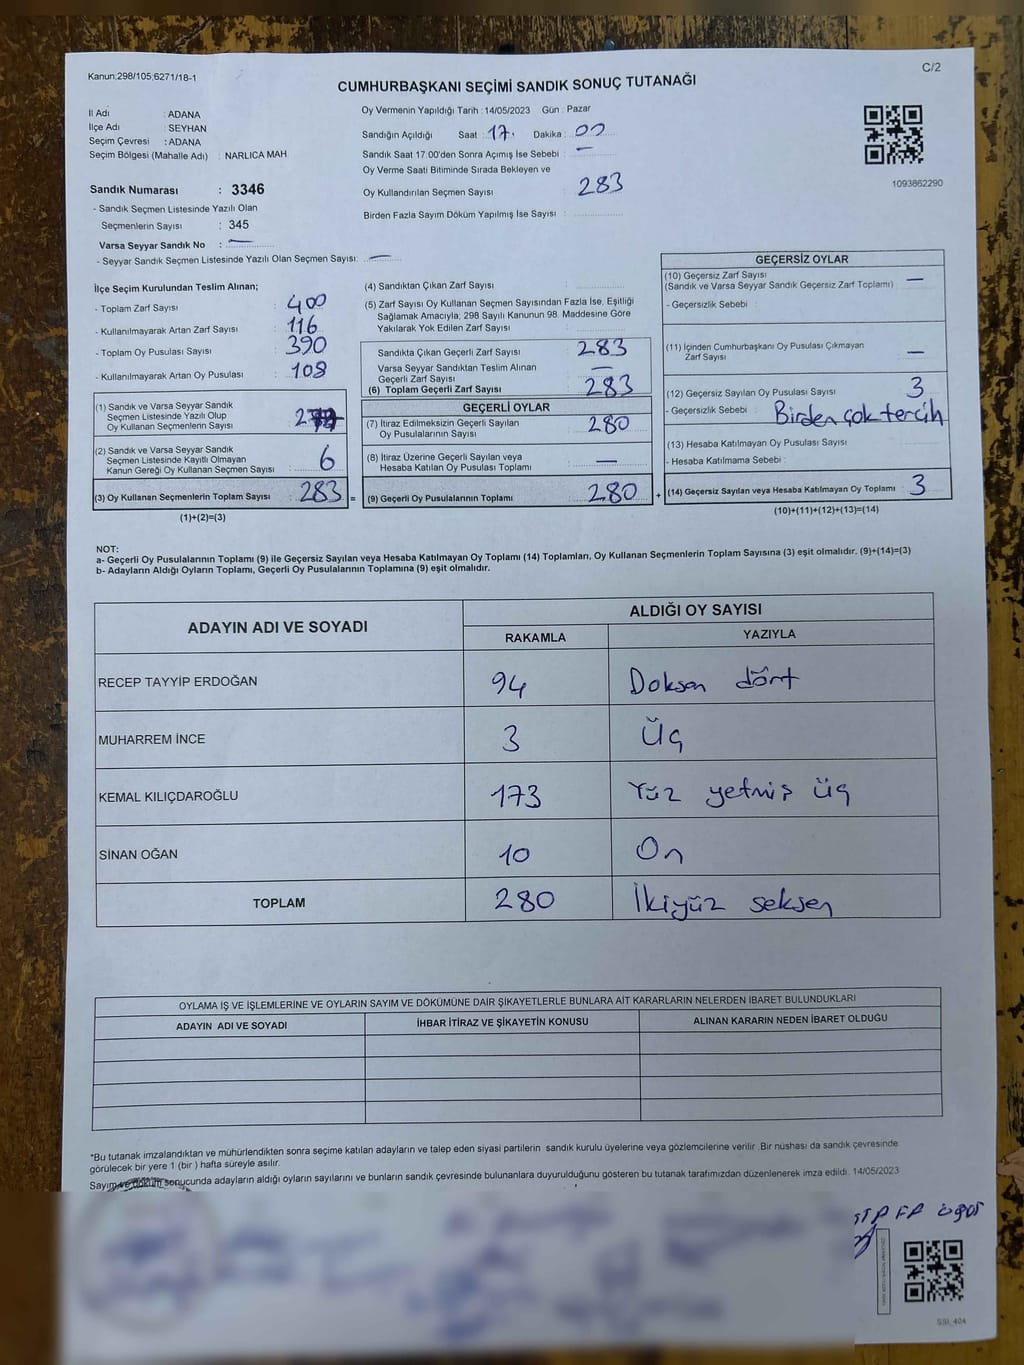 Kanun:298/105;6271/18-1
C/2
CUMHURBAŞKANI SEÇİMİ SANDIK SONUÇ TUTANAĞI
İl Adı : ADANA
İlçe Adı : SEYHAN
Seçim Çevresi : ADANA
Seçim Bölgesi (Mahalle Adı) : NARLICA MAH
Sandık Numarası : 3346
- Sandık Seçmen Listesinde Yazılı Olan
Seçmenlerin Sayısı : 345
Varsa Seyyar Sandık No : —
- Seyyar Sandık Seçmen Listesinde Yazılı Olan Seçmen Sayısı: —
Oy Vermenin Yapıldığı Tarih : 14/05/2023 Gün : Pazar
Sandığın Açıldığı Saat : 17. Dakika : 00
Sandık Saat 17:00'den Sonra Açımış İse Sebebi : —
Oy Verme Saati Bitiminde Sırada Bekleyen ve
Oy Kullandırılan Seçmen Sayısı : 283
Birden Fazla Sayım Döküm Yapılmış İse Sayısı :
1093862290
İlçe Seçim Kurulundan Teslim Alınan;
- Toplam Zarf Sayısı : 400
- Kullanılmayarak Artan Zarf Sayısı : 116
- Toplam Oy Pusulası Sayısı : 390
- Kullanılmayarak Artan Oy Pusulası : 108
(1) Sandık ve Varsa Seyyar Sandık
Seçmen Listesinde Yazılı Olup
Oy Kullanan Seçmenlerin Sayısı :
(2) Sandık ve Varsa Seyyar Sandık
Seçmen Listesinde Kayıtlı Olmayan
Kanun Gereği Oy Kullanan Seçmen Sayısı : 6
(3) Oy Kullanan Seçmenlerin Toplam Sayısı : 283 =
(1)+(2)=(3)
(4) Sandıktan Çıkan Zarf Sayısı :
(5) Zarf Sayısı Oy Kullanan Seçmen Sayısından Fazla İse, Eşitliği
Sağlamak Amacıyla; 298 Sayılı Kanunun 98. Maddesine Göre
Yakılarak Yok Edilen Zarf Sayısı :
Sandıkta Çıkan Geçerli Zarf Sayısı : 283
Varsa Seyyar Sandıktan Teslim Alınan
Geçerli Zarf Sayısı : —
(6) Toplam Geçerli Zarf Sayısı : 283
GEÇERLİ OYLAR
(7) İtiraz Edilmeksizin Geçerli Sayılan
Oy Pusulalarının Sayısı : 280
(8) İtiraz Üzerine Geçerli Sayılan veya
Hesaba Katılan Oy Pusulası Toplamı : —
(9) Geçerli Oy Pusulalarının Toplamı : 280 +
GEÇERSİZ OYLAR
(10) Geçersiz Zarf Sayısı : —
(Sandık ve Varsa Seyyar Sandık Geçersiz Zarf Toplamı)
- Geçersizlik Sebebi :
(11) İçinden Cumhurbaşkanı Oy Pusulası Çıkmayan
Zarf Sayısı : —
(12) Geçersiz Sayılan Oy Pusulası Sayısı : 3
- Geçersizlik Sebebi : Birden çok tercih
(13) Hesaba Katılmayan Oy Pusulası Sayısı :
- Hesaba Katılmama Sebebi :
(14) Geçersiz Sayılan veya Hesaba Katılmayan Oy Toplamı : 3
(10)+(11)+(12)+(13)=(14)
NOT:
a- Geçerli Oy Pusulalarının Toplamı (9) ile Geçersiz Sayılan veya Hesaba Katılmayan Oy Toplamı (14) Toplamları, Oy Kullanan Seçmenlerin Toplam Sayısına (3) eşit olmalıdır. (9)+(14)=(3)
b- Adayların Aldığı Oyların Toplamı, Geçerli Oy Pusulalarının Toplamına (9) eşit olmalıdır.
ADAYIN ADI VE SOYADI
ALDIĞI OY SAYISI
RAKAMLA YAZIYLA
RECEP TAYYİP ERDOĞAN 94 Doksan dört
MUHARREM İNCE 3 Üç
KEMAL KILIÇDAROĞLU 173 Yüz yetmiş üç
SİNAN OĞAN 10 On
TOPLAM 280 İkiyüz seksen
OYLAMA İŞ VE İŞLEMLERİNE VE OYLARIN SAYIM VE DÖKÜMÜNE DAİR ŞİKAYETLERLE BUNLARA AİT KARARLARIN NELERDEN İBARET BULUNDUKLARI
ADAYIN ADI VE SOYADI İHBAR İTİRAZ VE ŞİKAYETİN KONUSU ALINAN KARARIN NEDEN İBARET OLDUĞU
*Bu tutanak imzalandıktan ve mühürlendikten sonra seçime katılan adayların ve talep eden siyasi partilerin sandık kurulu üyelerine veya gözlemcilerine verilir .Bir nüshası da sandık çevresinde
görülecek bir yere 1 (bir ) hafta süreyle asılır.
Sayım ve döküm sonucunda adayların aldığı oyların sayılarını ve bunların sandık çevresinde bulunanlara duyurulduğunu gösteren bu tutanak tarafımızdan düzenlenerek imza edildi. 14/05/2023